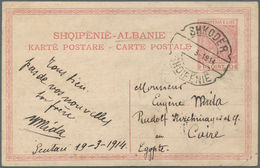 SHQIPËNIE-ALBANIE
KARTË POSTARE - CARTE POSTALE
SHKODËR
3.1914
SHQIPENIE
Tous bien
pas de vos nouvelles
ton frère
Mida
Scutari 19-3-1914
Monsieur
Eugène Mida
Rudolf
Caire
Egypte.